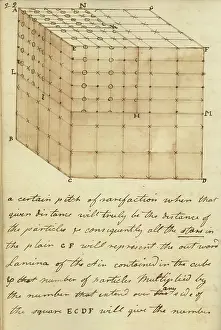 22
N P
A E F
L I
M
B H
C D
a certain pitch of rarefaction when that
given distance will truly be the distance of
the particles & consequently all the stars in
the plain CF will represent the outward
lamina of the Air contained in the cube
& that number of particles Multiplied by
the number that extend over any side of
the square ECDF will give the number